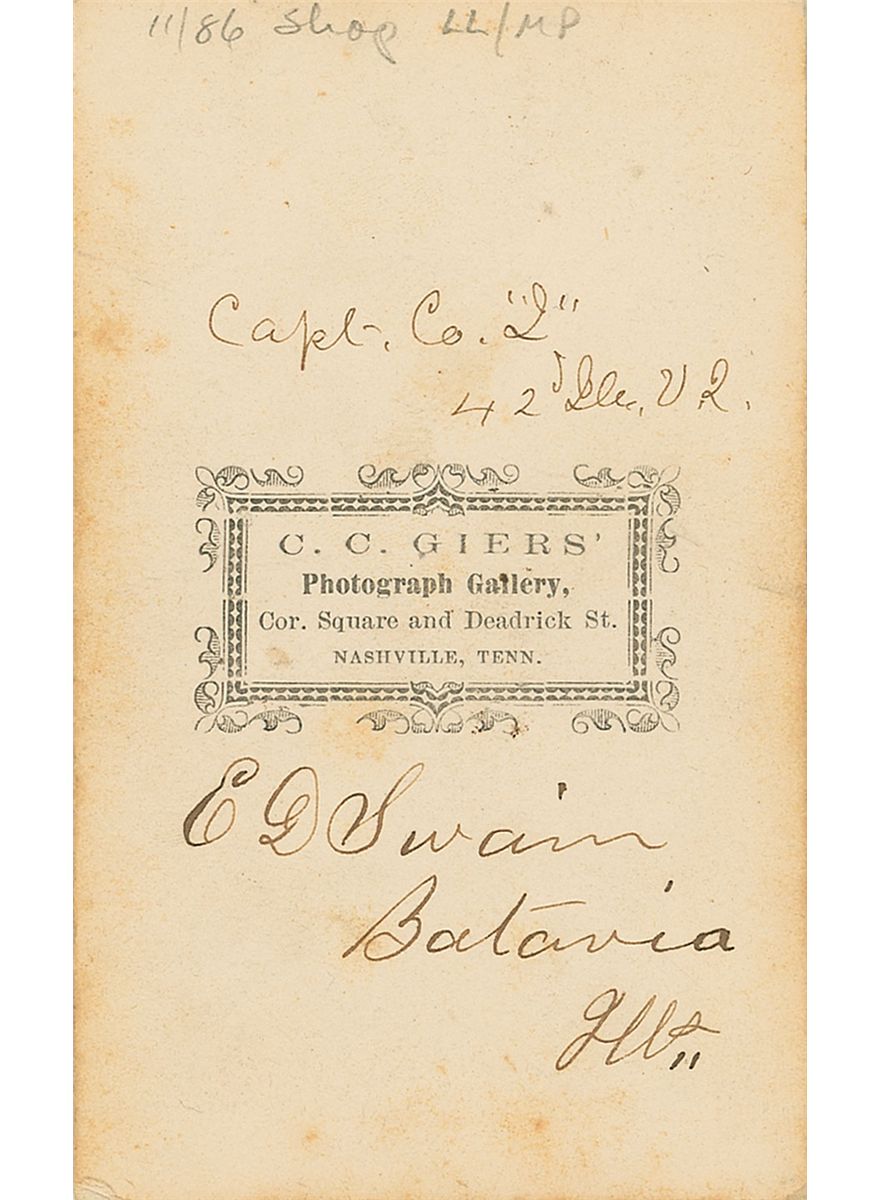 11/86 Shop LL/MP
Capt. Co. "I"
42d Ill. V.I.
C. C. GIERS'
Photograph Gallery,
Cor. Square and Deadrick St.
NASHVILLE, TENN.
E D Swain
Batavia
Ills